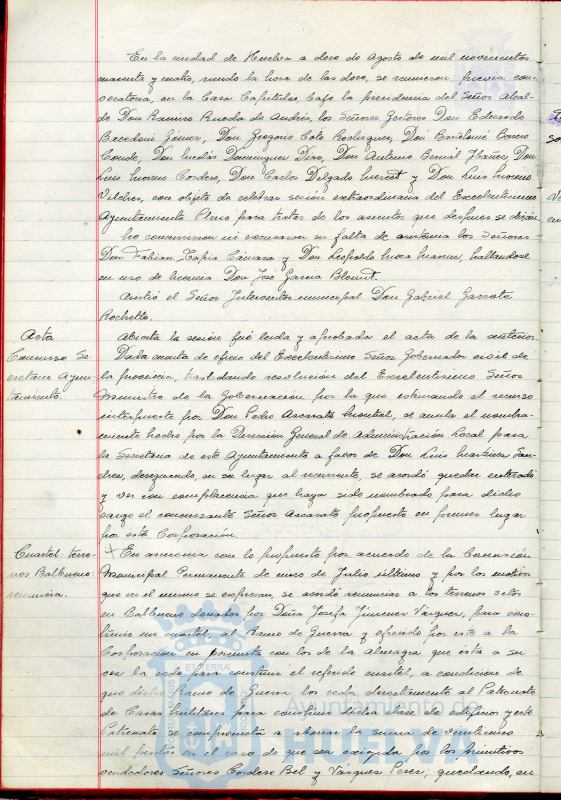 En la ciudad de Huelva a doce de Agosto de mil novecientos
cuarenta y cuatro, siendo la hora de las doce, se reunieron, previa con-
vocatoria, en la Casa Capitular bajo la presidencia del Señor Alcal-
de Don Ramiro Rueda de Andrés, los Señores Gestores Don Eduardo
Don Gregorio Coto Rodríguez, Don Bartolomé
Conde, Don Domínguez Díaz, Don Antonio Bernal Ibáñez, Don
Luis Moreno Cordero, Don Carlos Delgado y Don Luis Moreno
Vilches, con objeto de celebrar sesión extraordinaria del Excelentísimo
Ayuntamiento Pleno para tratar de los asuntos que después se dirán.
No concurrieron ni excusaron su falta de asistencia los Señores
Don Fabián Tapia Cámara y Don Leopoldo hallándose
en uso de licencia Don José García
Asistió el Señor Interventor municipal Don Gabriel Garrote
Rochette.
Acta
Abierta la sesión fué leída y aprobada el acta de la anterior.
Concurso Se-
cretario Ayun-
tamiento.
Dada cuenta de oficio del Excelentísimo Señor Gobernador civil de
la provincia, trasladando resolución del Excelentísimo Señor
Ministro de la Gobernación por la que estimando el recurso
interpuesto por Don Pedro Ascarate se anula el nombra-
miento hecho por la Dirección General de Administración Local para
la Secretaría de este Ayuntamiento a favor de Don Luis Martínez San-
chez, designando, en su lugar al recurrente, se acordó quedar enterado
y ver con complacencia que haya sido nombrado para dicho
cargo el concursante Señor Ascarate propuesto en primer lugar
por esta Corporación.
Cuartel: terre-
nos Balbueno:
renuncia.
+ En armonía con lo propuesto por acuerdo de la Comisión
Municipal Permanente de cinco de Julio último y por los motivos
que en el mismo se expresan, se acordó renunciar a los terrenos sitos
en Balbueno donados por Doña Josefa Jimenez Vázquez, para cons-
truir un cuartel, al Ramo de Guerra y ofrecido por este a la
Corporación en permuta con los de la Almagra que ésta a su
vez la cede para construir el referido cuartel, a condición de
que dicho Ramo de Guerra los ceda directamente al Patronato
de Casas Militares para construir dicha clase de edificios y este
Patronato se comprometa a abonar la suma de veinticinco
mil pesetas en el caso de que sea exigida por los primitivos
vendedores Señores Cordero Bel y Vázquez Perez; quedando, en
Ayuntamiento de
HUELVA